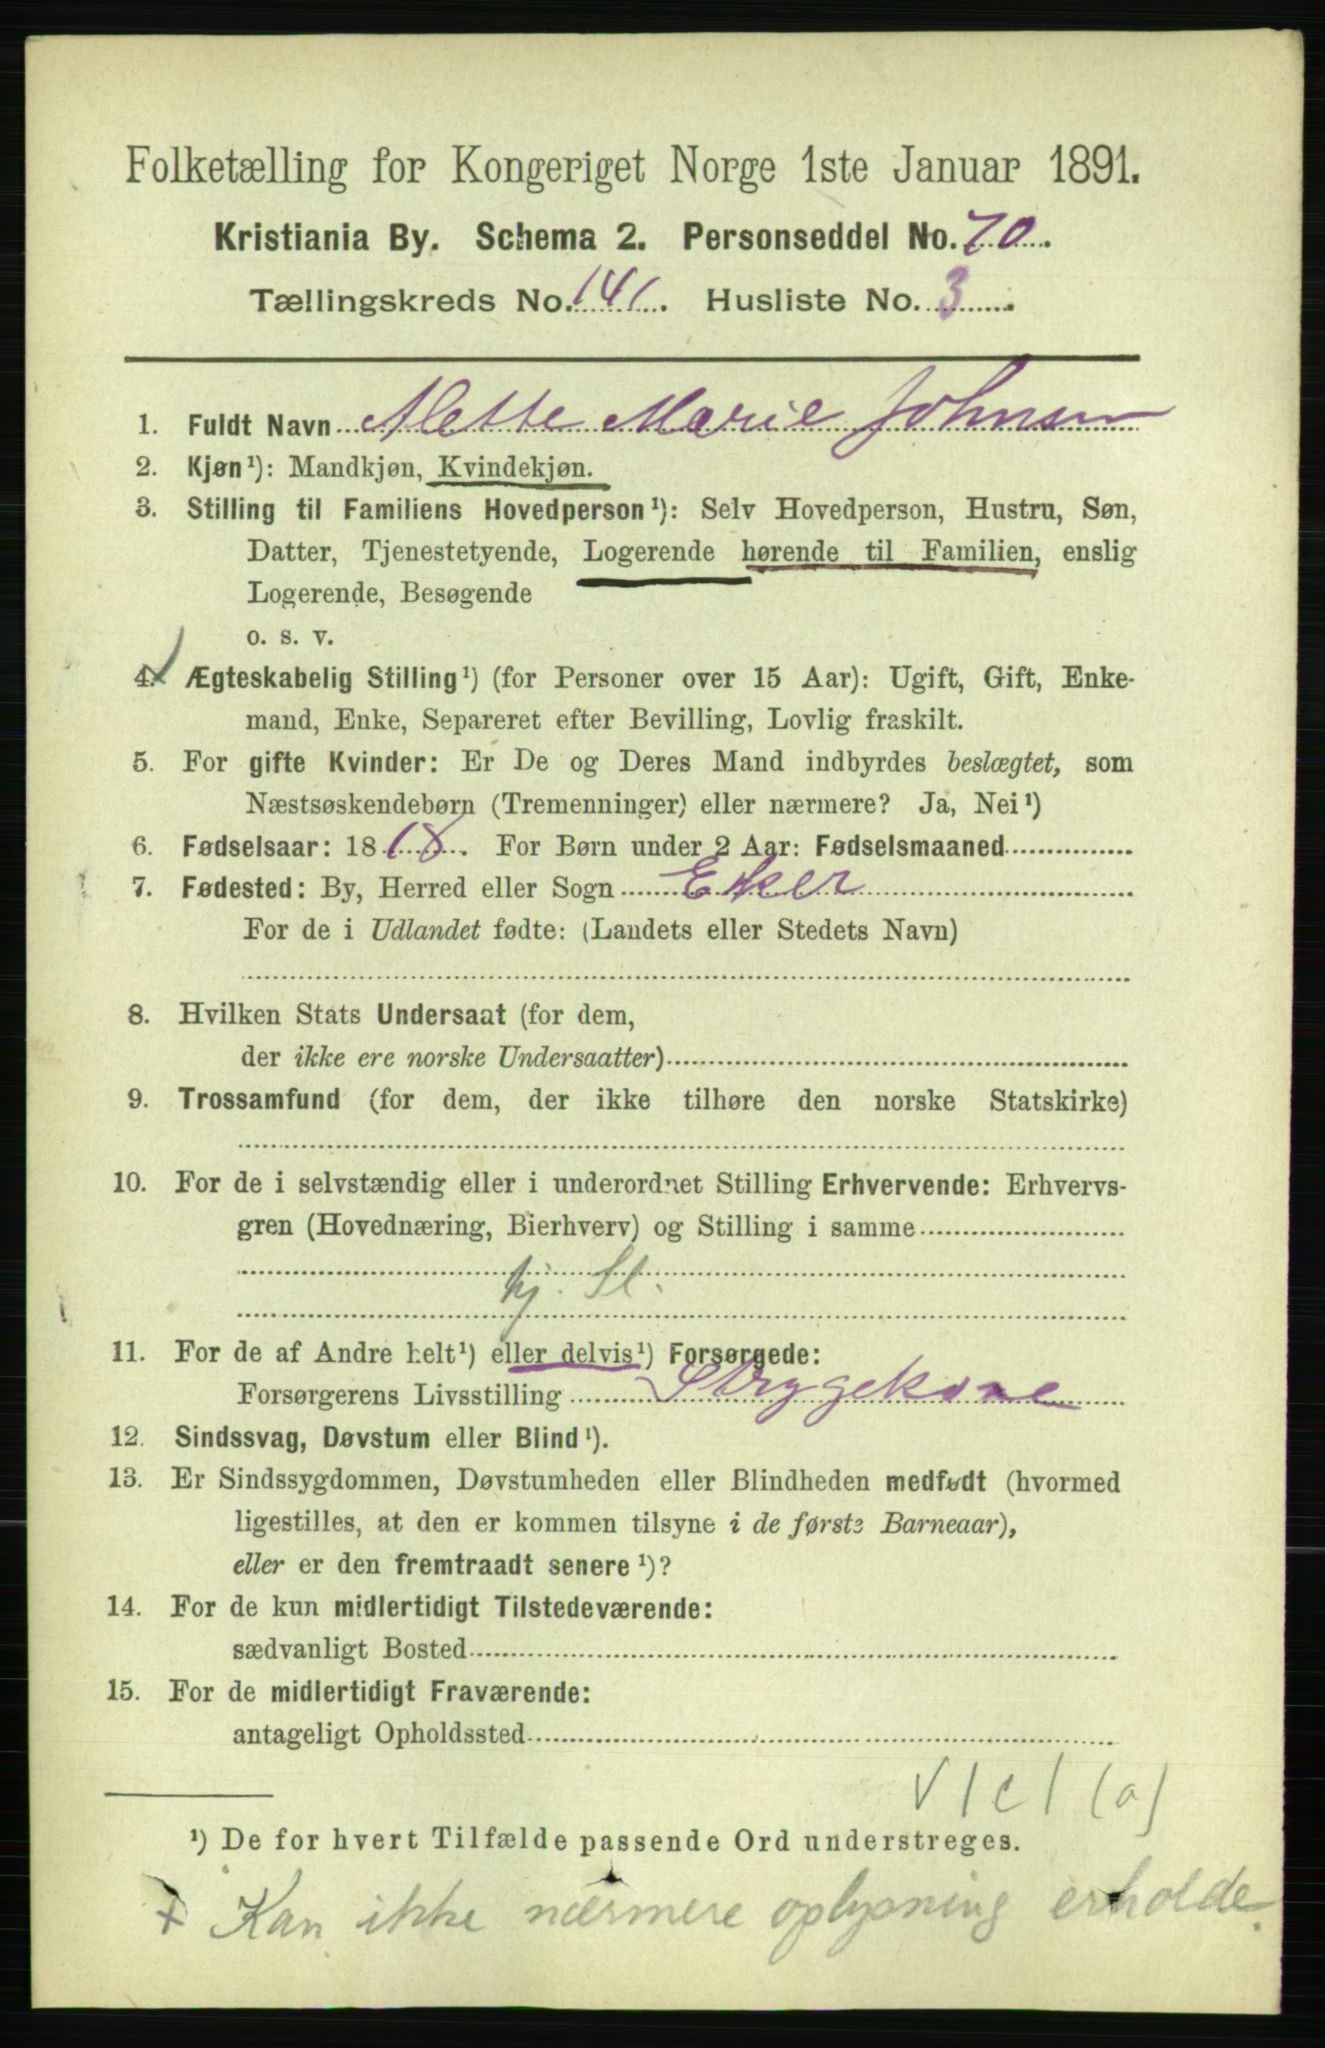 Folketælling for Kongeriget Norge 1ste Januar 1891.
Kristiania By. Schema 2. Personseddel No. 70.
Tællingskreds No. 141. Husliste No. 3.
1. Fuldt Navn Mette Marie Johnsen
2. Kjøn¹): Mandkjøn, Kvindekjøn.
3. Stilling til Familiens Hovedperson¹): Selv Hovedperson, Hustru, Søn,
Datter, Tjenestetyende, Logerende hørende til Familien, enslig
Logerende, Besøgende
o. s. v.
4. Ægteskabelig Stilling¹) (for Personer over 15 Aar): Ugift, Gift, Enke-
mand, Enke, Separeret efter Bevilling, Lovlig fraskilt.
5. For gifte Kvinder: Er De og Deres Mand indbyrdes beslægtet, som
Næstsøskendebørn (Tremenninger) eller nærmere? Ja, Nei¹)
6. Fødselsaar: 1818. For Børn under 2 Aar: Fødselsmaaned
7. Fødested: By, Herred eller Sogn Eker
For de i Udlandet fødte: (Landets eller Stedets Navn)
8. Hvilken Stats Undersaat (for dem,
der ikke ere norske Undersaatter)
9. Trossamfund (for dem, der ikke tilhøre den norske Statskirke)
10. For de i selvstændig eller i underordnet Stilling Erhvervende: Erhvervs-
gren (Hovednæring, Bierhverv) og Stilling i samme
hj. Sl.
11. For de af Andre helt¹) eller delvis¹) Forsørgede:
Forsørgerens Livsstilling Strygekone
12. Sindssvag, Døvstum eller Blind¹).
13. Er Sindssygdommen, Døvstumheden eller Blindheden medfødt (hvormed
ligestilles, at den er kommen tilsyne i de første Barneaar),
eller er den fremtraadt senere¹)?
14. For de kun midlertidigt Tilstedeværende:
sædvanligt Bosted
15. For de midlertidigt Fraværende:
antageligt Opholdssted
V/c/(a)
¹) De for hvert Tilfælde passende Ord understreges.
+ Kan ikke nærmere oplysning erholde.